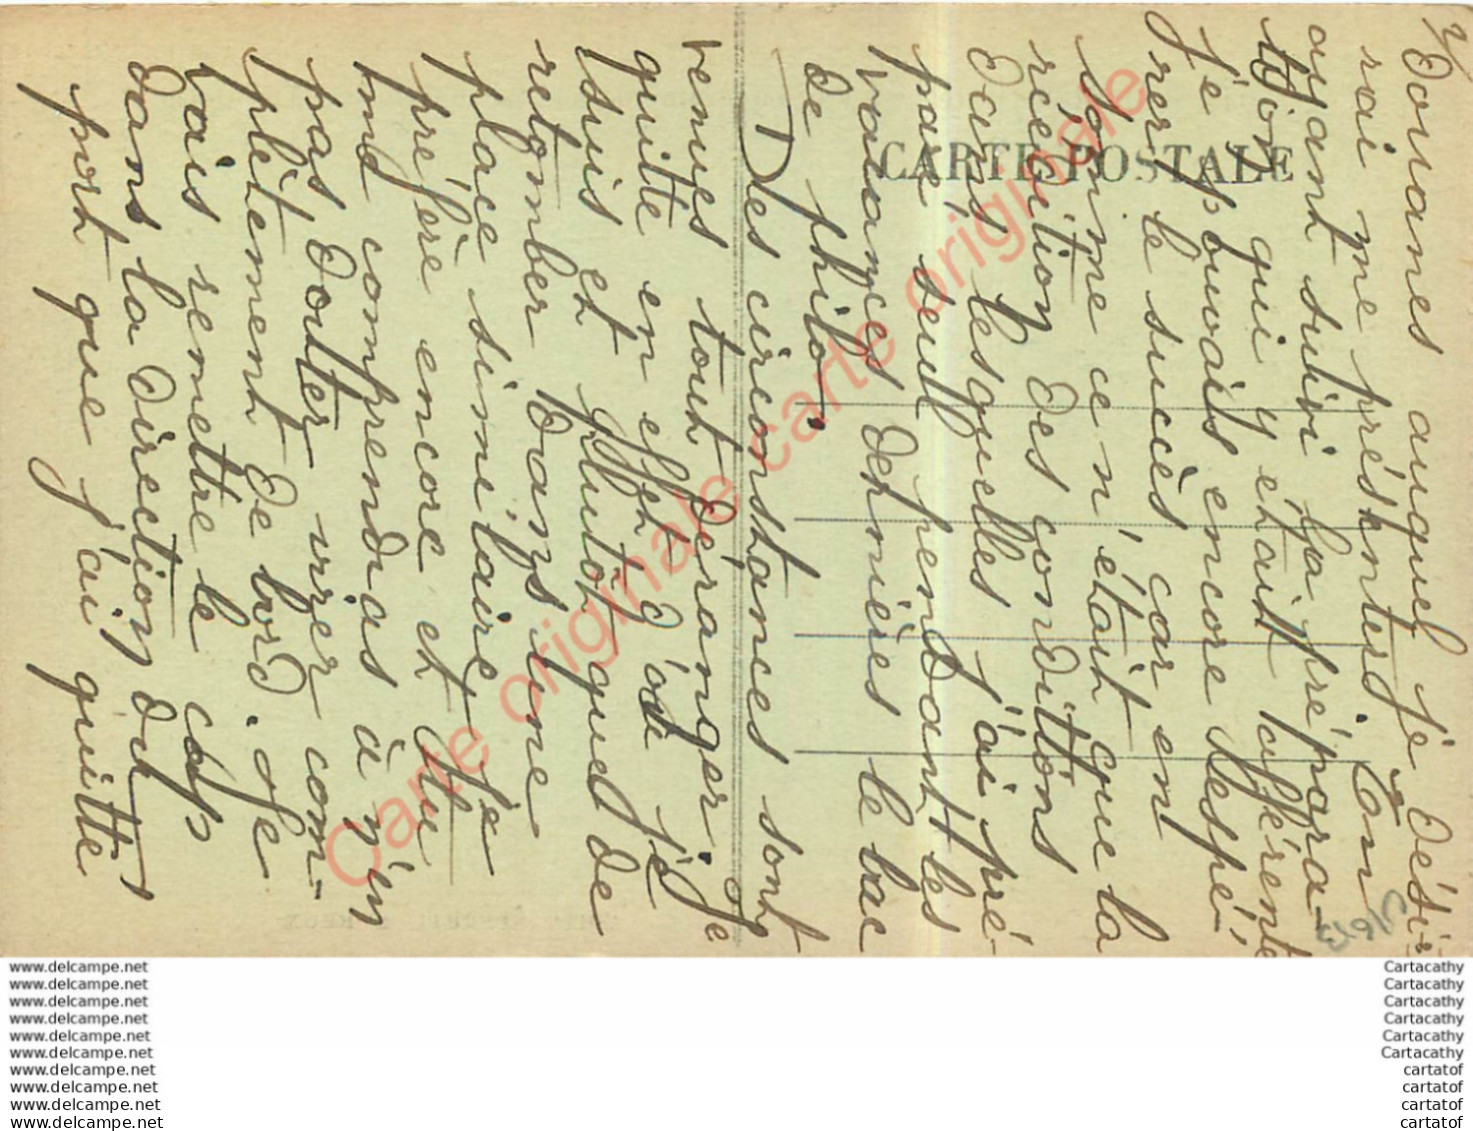 2/
Douanes auquel je désir
rai me présenter. En
ayant suivi la prépara-
tion qui y était afférente
je pouvais encore espé-
rer le succès car, en
somme ce n'était que la
réédition des conditions
dans lesquelles j'ai pré-
paré seul pendant les
vacances dernières le bac
de philo.
Des circonstances sont
venues tout déranger. Je
quitte en effet d'où je
suis et plutôt que de
retomber dans une
place similaire je
préfère encore et tu
me comprendras à n'en
pas douter virer com-
plètement de bord. Je
vais remettre le cap
dans la direction du
port que j'ai quitté
CARTE POSTALE
Carte originale carte originale
www.delcampe.net
www.delcampe.net
www.delcampe.net
www.delcampe.net
www.delcampe.net
www.delcampe.net
www.delcampe.net
www.delcampe.net
www.delcampe.net
www.delcampe.net
Cartacathy
Cartacathy
Cartacathy
Cartacathy
Cartacathy
Cartacathy
cartatof
cartatof
cartatof
cartatof